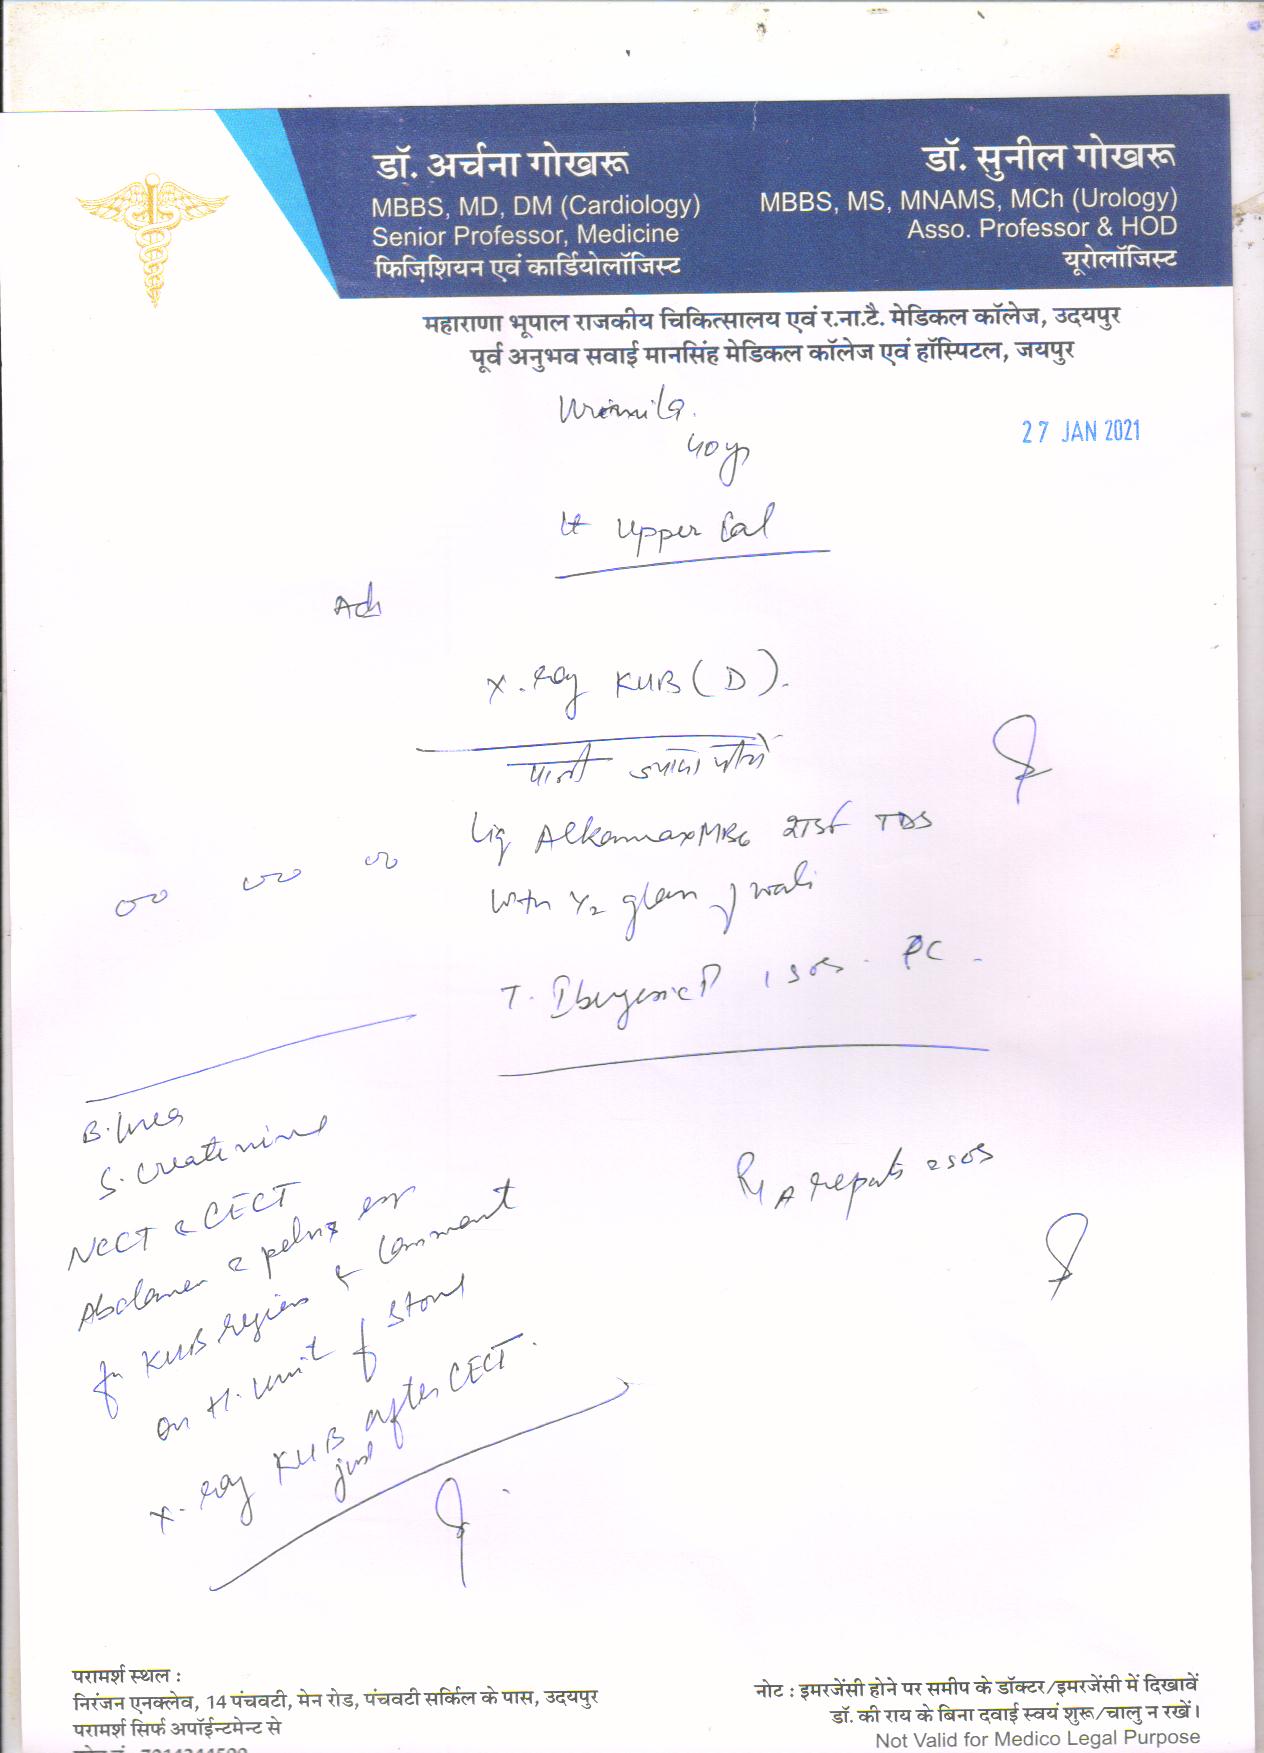 डॉ. अर्चना गोखरू
MBBS, MD, DM (Cardiology)
Senior Professor, Medicine
फिज़िशियन एवं कार्डियोलॉजिस्ट
डॉ. सुनील गोखरू
MBBS, MS, MNAMS, MCh (Urology)
Asso. Professor & HOD
यूरोलॉजिस्ट
महाराणा भूपाल राजकीय चिकित्सालय एवं र.ना.टै. मेडिकल कॉलेज, उदयपुर
पूर्व अनुभव सवाई मानसिंह मेडिकल कॉलेज एवं हॉस्पिटल, जयपुर
27 JAN 2021
40 yr
Lt Upper Cal
Adv
X-ray KUB (D).
पानी ज्यादा पीये
Liq Alkamax MB6 TDS
with 1/2 glass of water
T. 1 SOS PC
B. Urea
S. Creatinine
NCCT & CECT
Abdomen & pelvis esp
for KUB region & Comment
on H. Unit of Stone
X-ray KUB just after CECT.
reports SOS
परामर्श स्थल :
निरंजन एनक्लेव, 14 पंचवटी, मेन रोड, पंचवटी सर्किल के पास, उदयपुर
परामर्श सिर्फ अपॉईन्टमेन्ट से
नोट : इमरजेंसी होने पर समीप के डॉक्टर/इमरजेंसी में दिखावें
डॉ. की राय के बिना दवाई स्वयं शुरू/चालु न रखें।
Not Valid for Medico Legal Purpose